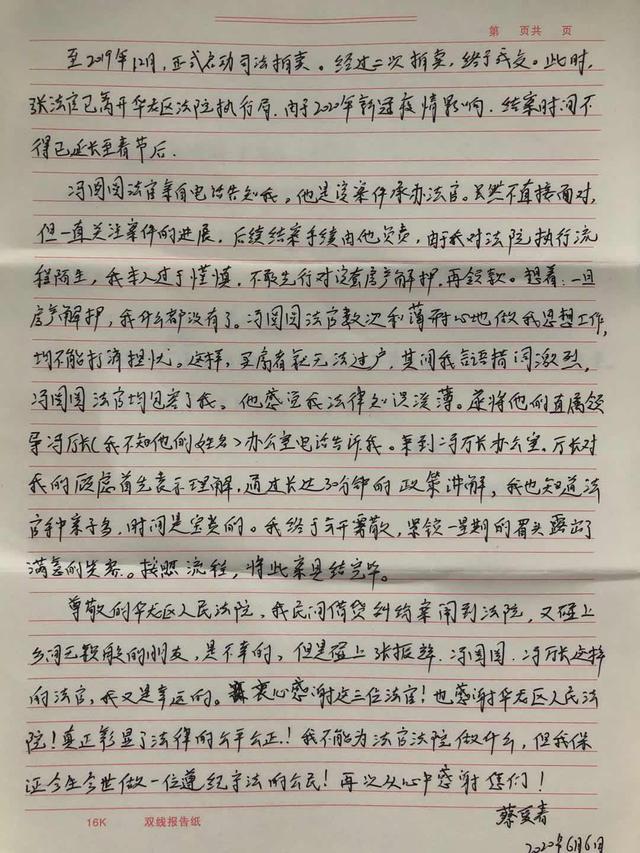 第 页共 页
至2019年12月,正式启动司法拍卖。经过二次拍卖,终于成交。此时,
张法官已离开华龙区法院执行局,由于2020年新冠疫情影响,结案时间不
得已延长至春节后.
冯囡囡法官亲自电话告知我。他是该案件承办法官。虽然不直接面对,
但一直关注案件的进展,后续结案手续由他负责,由于我对法院执行流
程陌生,我本人过于慬慎,不敢先行对该套房产解押,再领款。想着:一旦
房产解押,我什么都没有了。冯囡囡法官数次和蔼耐心地做我思想工作,
均不能打消担忧。这样,买房者就无法过户,其间我言语措词激烈,
冯囡囡法官均包容了我。他感觉我法律知识浅薄。并将他们直属领
导冯厅长(我不知他的姓名)办公室电话告诉我。来到冯厅长办公室,厅长对
我的顾虑首先表示理解,通过长达30分钟的政策讲解,我也知道法
官们案子多,时间是宝贵的。我终于云开雾散,紧锁一星期的眉头露出了
满意的笑容。按照流程,将此案具结完毕。
尊敬的华龙区人民法院,我民间借贷纠纷案闹到法院,又碰上
乡间无赖般的朋友,是不幸的,但是碰上张振、冯囡囡、冯厅长这样
的法官,我又是幸运的。衷心感谢这三位法官!也感谢华龙区人民法
院!真正彰显了法律的公平公正!我不能为法官法院做什么,但我保
证今生今世做一位遵纪守法的公民!再次从心中感谢您们!
蔡爱春
2020年6月6日
16K 双线报告纸